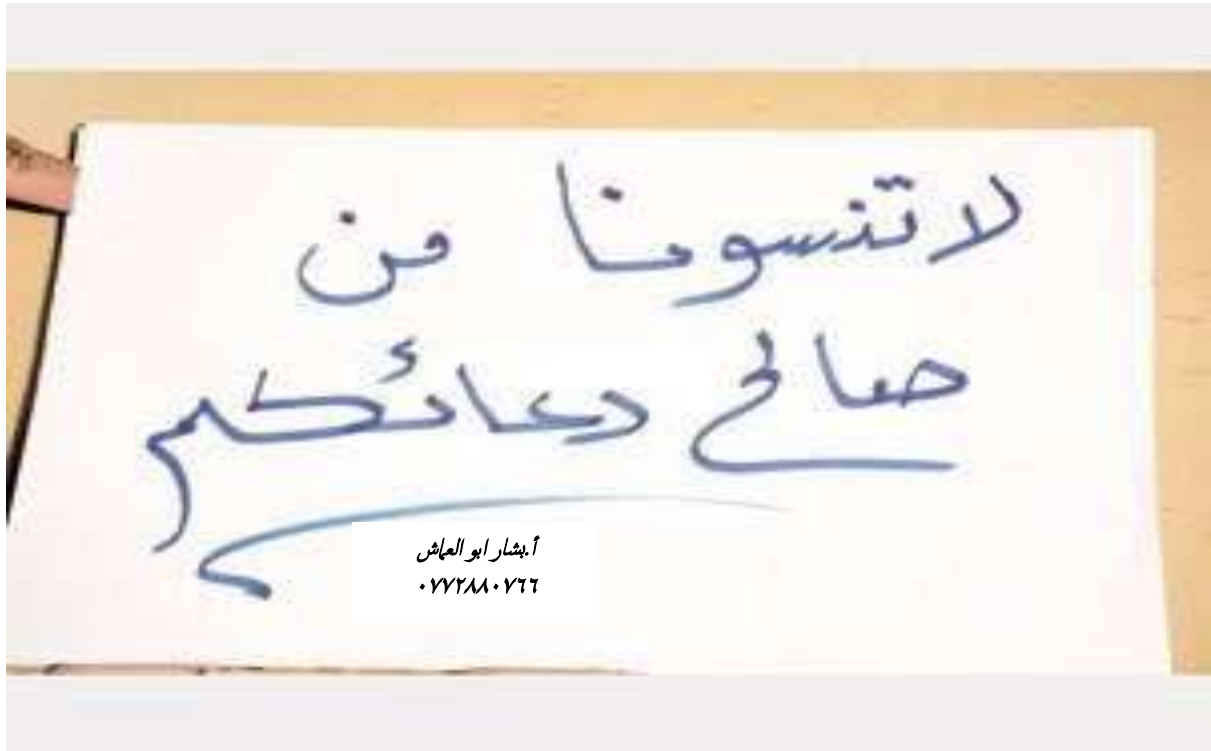 لا تنسونا من
صالح دعائكم
أ.بشار ابو العماش
٠٧٧٢٨٨٠٧٦٦